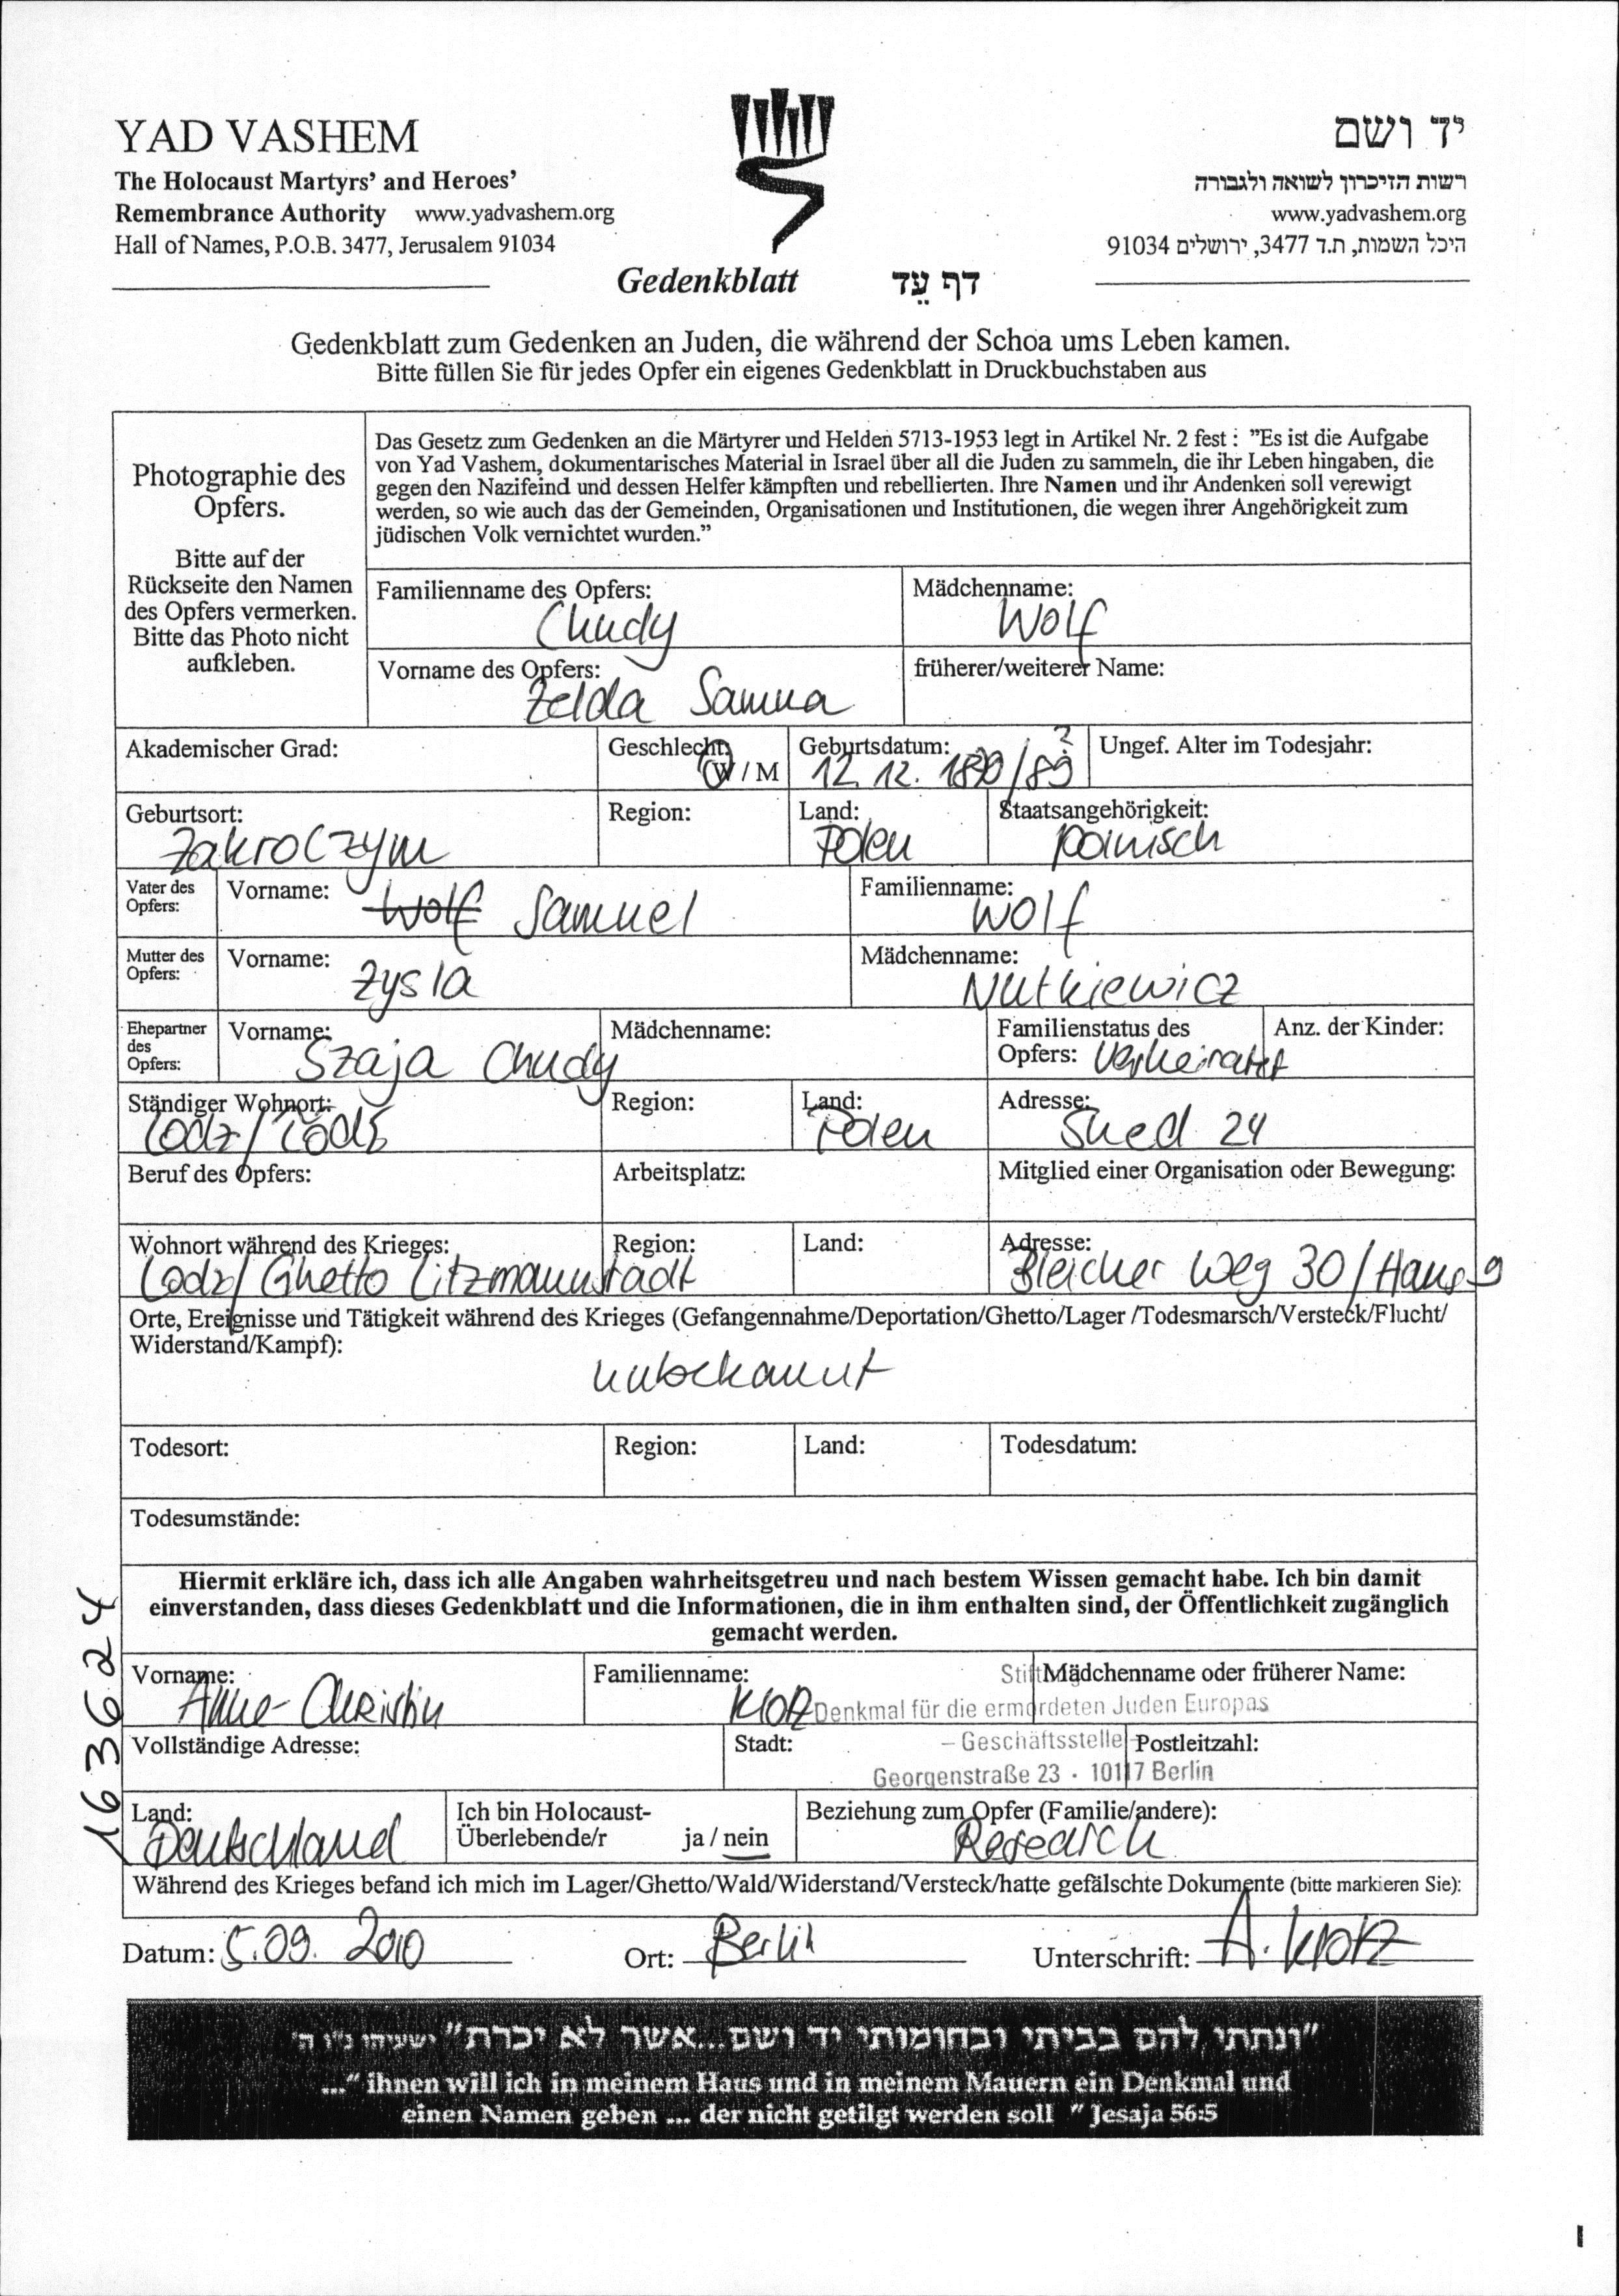 YAD VASHEM
The Holocaust Martyrs' and Heroes'
Remembrance Authority www.yadvashem.org
Hall of Names, P.O.B. 3477, Jerusalem 91034
יד ושם
רשות הזיכרון לשואה ולגבורה
www.yadvashem.org
היכל השמות, ת.ד 3477, ירושלים 91034
Gedenkblatt דף עֵד
Gedenkblatt zum Gedenken an Juden, die während der Schoa ums Leben kamen.
Bitte füllen Sie für jedes Opfer ein eigenes Gedenkblatt in Druckbuchstaben aus
Photographie des
Opfers.
Bitte auf der
Rückseite den Namen
des Opfers vermerken.
Bitte das Photo nicht
aufkleben.
Das Gesetz zum Gedenken an die Märtyrer und Helden 5713-1953 legt in Artikel Nr. 2 fest : "Es ist die Aufgabe
von Yad Vashem, dokumentarisches Material in Israel über all die Juden zu sammeln, die ihr Leben hingaben, die
gegen den Nazifeind und dessen Helfer kämpften und rebellierten. Ihre Namen und ihr Andenken soll verewigt
werden, so wie auch das der Gemeinden, Organisationen und Institutionen, die wegen ihrer Angehörigkeit zum
jüdischen Volk vernichtet wurden."
Familienname des Opfers: Chudy
Mädchenname: Wolf
Vorname des Opfers: Zelda Samua
früherer/weiterer Name:
Akademischer Grad:
Geschlecht: W / M
Geburtsdatum: 12.12.
Ungef. Alter im Todesjahr:
Geburtsort: Zakroczym
Region:
Land: Polen
Staatsangehörigkeit: polnisch
Vater des Opfers: Vorname: Wolf Samuel
Familienname: Wolf
Mutter des Opfers: Vorname: Zysla
Mädchenname: Nutkiewicz
Ehepartner des Opfers: Vorname: Szaja Chudy
Mädchenname:
Familienstatus des Opfers: verheiratet
Anz. der Kinder:
Ständiger Wohnort: Lodz / Łódź
Region:
Land: Polen
Adresse: Sued 24
Beruf des Opfers:
Arbeitsplatz:
Mitglied einer Organisation oder Bewegung:
Wohnort während des Krieges: Lodz/ Ghetto Litzmannstadt
Region:
Land:
Adresse: Bleicher Weg 30 / Haus 9
Orte, Ereignisse und Tätigkeit während des Krieges (Gefangennahme/Deportation/Ghetto/Lager /Todesmarsch/Versteck/Flucht/
Widerstand/Kampf):
unbekannt
Todesort:
Region:
Land:
Todesdatum:
Todesumstände:
Hiermit erkläre ich, dass ich alle Angaben wahrheitsgetreu und nach bestem Wissen gemacht habe. Ich bin damit
einverstanden, dass dieses Gedenkblatt und die Informationen, die in ihm enthalten sind, der Öffentlichkeit zugänglich
gemacht werden.
Vorname: Anne-Christin
Familienname: Klotz
Mädchenname oder früherer Name:
Denkmal für die ermordeten Juden Europas
Vollständige Adresse:
Stadt:
– Geschäftsstelle –
Postleitzahl:
Georgenstraße 23 · 10117 Berlin
Land: Deutschland
Ich bin Holocaust-
Überlebende/r ja / nein
Beziehung zum Opfer (Familie/andere): Research
Während des Krieges befand ich mich im Lager/Ghetto/Wald/Widerstand/Versteck/hatte gefälschte Dokumente (bitte markieren Sie):
Datum: 5.09. 2010 Ort: Berlin Unterschrift: A. Klotz
163624
"ונתתי להם בביתי ובחומותי יד ושם...אשר לא יכרת" ישעיהו נ"ו ה'
..." ihnen will ich in meinem Haus und in meinem Mauern ein Denkmal und
einen Namen geben ... der nicht getilgt werden soll " Jesaja 56:5